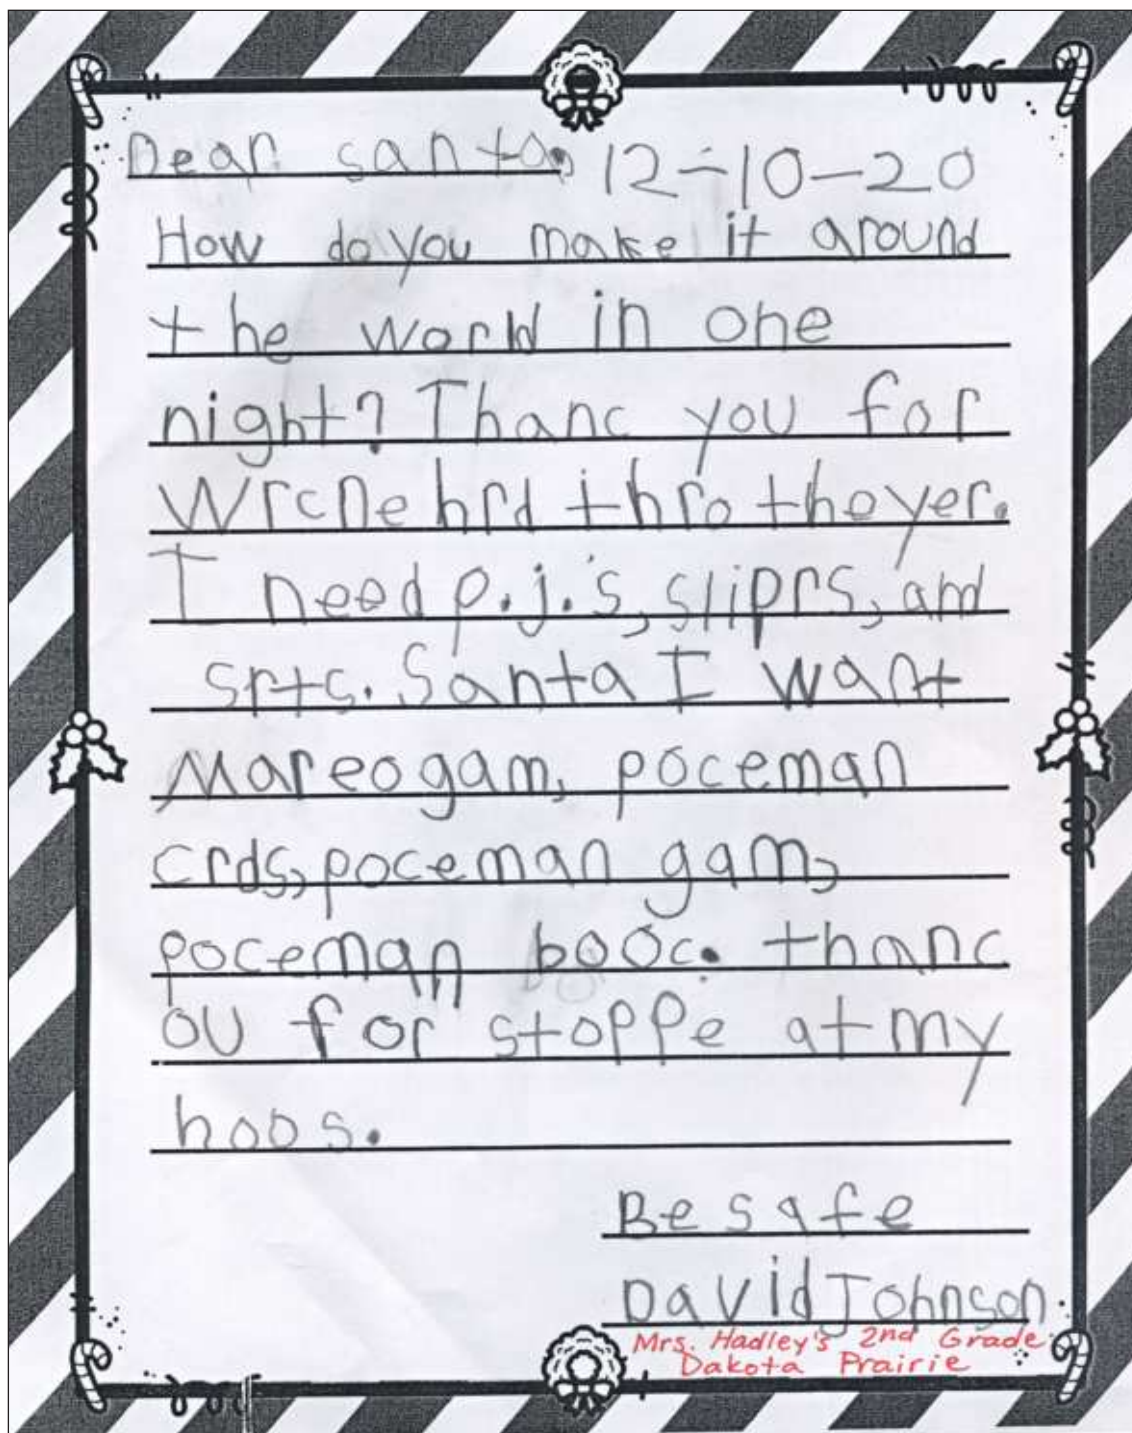 Dear santa, 12-10-20
How do you make it around
the world in one
night? Thanc you for
wrcne hrd thro the yer.
I need p.j.'s, sliprs, and
srts. Santa I want
Mareo gam, poceman
crds, poceman gam,
poceman booc. thanc
ou for stoppe at my
hoos.
Be safe
David Johnson
Mrs. Hadley's 2nd Grade
Dakota Prairie